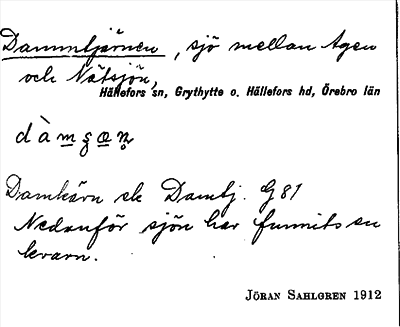 Dammtjärnen, sjö mellan Agen
och Nätsjön,
Hällefors sn, Grythytte o. Hällefors hd, Örebro län
Damkärn ek Dambj. G 81
Nedanför sjön har funnits en
kvarn.
JÖRAN SAHLGREN 1912